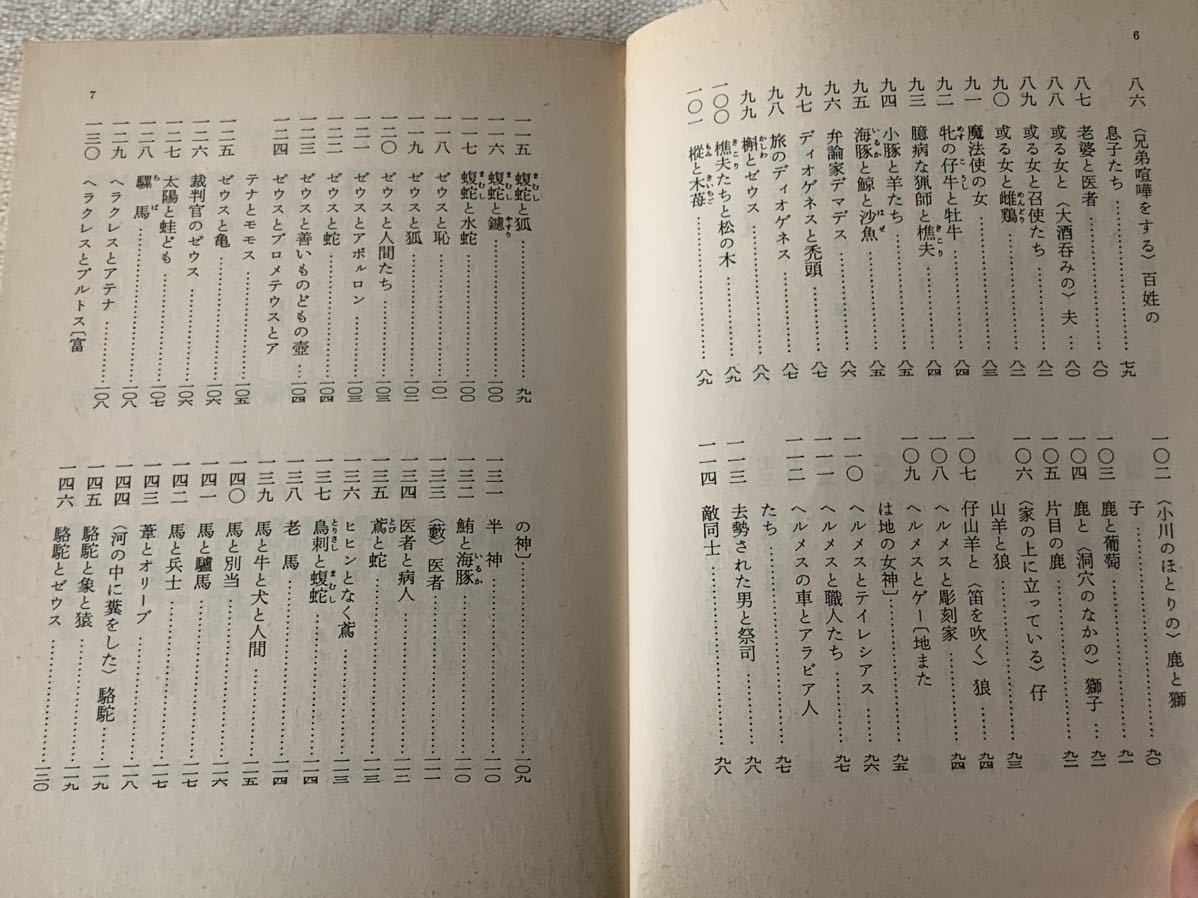 6
八六 〈兄弟喧嘩をする〉百姓の
息子たち……七九
八七 老婆と医者……八〇
八八 或る女と〈大酒呑みの〉夫…八〇
八九 或る女と召使たち……八二
九〇 或る女と雌鶏……八二
九一 魔法使の女……八三
九二 牝の仔牛と牡牛……八四
九三 臆病な猟師と樵夫……八四
九四 小豚と羊たち……八五
九五 海豚と鯨と沙魚……八五
九六 弁論家デマデス……八六
九七 ディオゲネスと禿頭……八七
九八 旅のディオゲネス……八七
九九 槲とゼウス……八八
一〇〇 樵夫たちと松の木……八九
一〇一 樅と木苺……八九
一〇二 〈小川のほとりの〉鹿と獅
子……九〇
一〇三 鹿と葡萄……九一
一〇四 鹿と〈洞穴のなかの〉獅子…九二
一〇五 片目の鹿……九二
一〇六 〈家の上に立っている〉仔
山羊と狼……九三
一〇七 仔山羊と〈笛を吹く〉狼……九四
一〇八 ヘルメスと彫刻家……九四
一〇九 ヘルメスとゲー〔地また
は地の女神〕……九五
一一〇 ヘルメスとテイレシアス……九六
一一一 ヘルメスと職人たち……九七
一一二 ヘルメスの車とアラビア人
たち……九七
一一三 去勢された男と祭司……九八
一一四 敵同士……九八
7
一一五 蝮蛇と狐……九九
一一六 蝮蛇と鑢……一〇〇
一一七 蝮蛇と水蛇……一〇〇
一一八 ゼウスと恥……一〇一
一一九 ゼウスと狐……一〇二
一二〇 ゼウスと人間たち……一〇三
一二一 ゼウスとアポルロン……一〇三
一二二 ゼウスと蛇……一〇四
一二三 ゼウスと善いものどもの壺…一〇四
一二四 ゼウスとプロメテウスとア
テナとモモス……一〇五
一二五 ゼウスと亀……一〇六
一二六 裁判官のゼウス……一〇六
一二七 太陽と蛙ども……一〇七
一二八 騾馬……一〇八
一二九 ヘラクレスとアテナ……一〇八
一三〇 ヘラクレスとプルトス〔富
の神〕……一〇九
一三一 半神……一一〇
一三二 鮪と海豚……一一〇
一三三 〈藪〉医者……一一一
一三四 医者と病人……一一二
一三五 鳶と蛇……一一三
一三六 ヒヒンとなく鳶……一一三
一三七 鳥刺と蝮蛇……一一四
一三八 老馬……一一四
一三九 馬と牛と犬と人間……一一五
一四〇 馬と別当……一一六
一四一 馬と驢馬……一一七
一四二 馬と兵士……一一七
一四三 葦とオリーブ……一一八
一四四 〈河の中に糞をした〉駱駝……一一九
一四五 駱駝と象と猿……一一九
一四六 駱駝とゼウス……一二〇